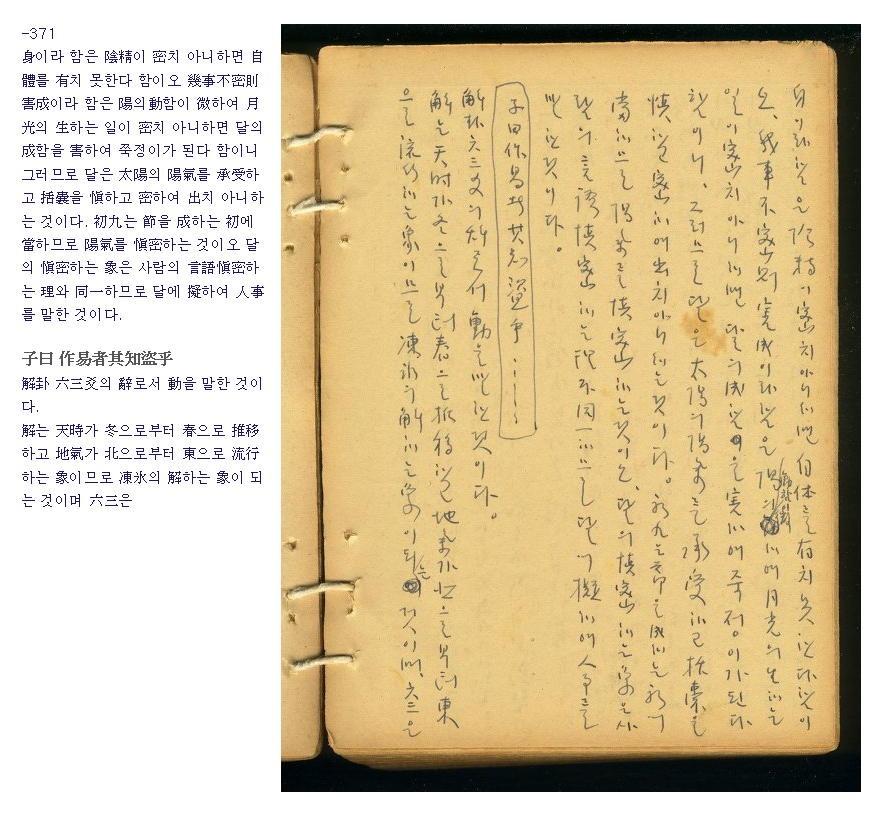 -371
身이라 함은 陰精이 密치 아니하면 自
體를 有치 못한다 함이오 幾事不密則
害成이라 함은 陽의 動함이 微하여 月
光의 生하는 일이 密치 아니하면 달의
成함을 害하여 쭉정이가 된다 함이니
그러므로 달은 太陽의 陽氣를 承受하
고 括囊을 愼하고 密하여 出치 아니하
는 것이다. 初九는 節을 成하는 初에
當하므로 陽氣를 愼密하는 것이오 달
의 愼密하는 象은 사람의 言語愼密하
는 理와 同一하므로 달에 擬하여 人事
를 말한 것이다.
子曰 作易者其知盜乎
解卦 六三爻의 辭로서 動을 말한 것이
다.
解는 天時가 冬으로부터 春으로 推移
하고 地氣가 北으로부터 東으로 流行
하는 象이므로 凍氷의 解하는 象이 되
는 것이며 六三은
身이라 함은 陰精이 密치 아니하면 自体를 有치 못한다 함이
오, 幾事不密則害成이라 함은 陽의 動함이 微하여 月光의 生하는
일이 密치 아니하면 달의 成함을 害하여 쭉정이가 된다
함이니, 그러므로 달은 太陽의 陽氣를 承受하고 括囊을
愼하고 密하여 出치 아니하는 것이다. 初九는 節을 成하는 初에
當하므로 陽氣를 愼密하는 것이오, 달의 愼密하는 象은 사
람의 言語愼密하는 理와 同一하므로 달에 擬하여 人事를
말한것이다.
子曰作易者其知盜乎......
解卦六三爻의 辭로서 動을 말한것이다.
解는 天時가 冬으로부터 春으로 推移하고 地氣가 北으로부터 東
으로 流行하는 象이므로 凍氷의 解하는 象이 되는 것이며, 六三은